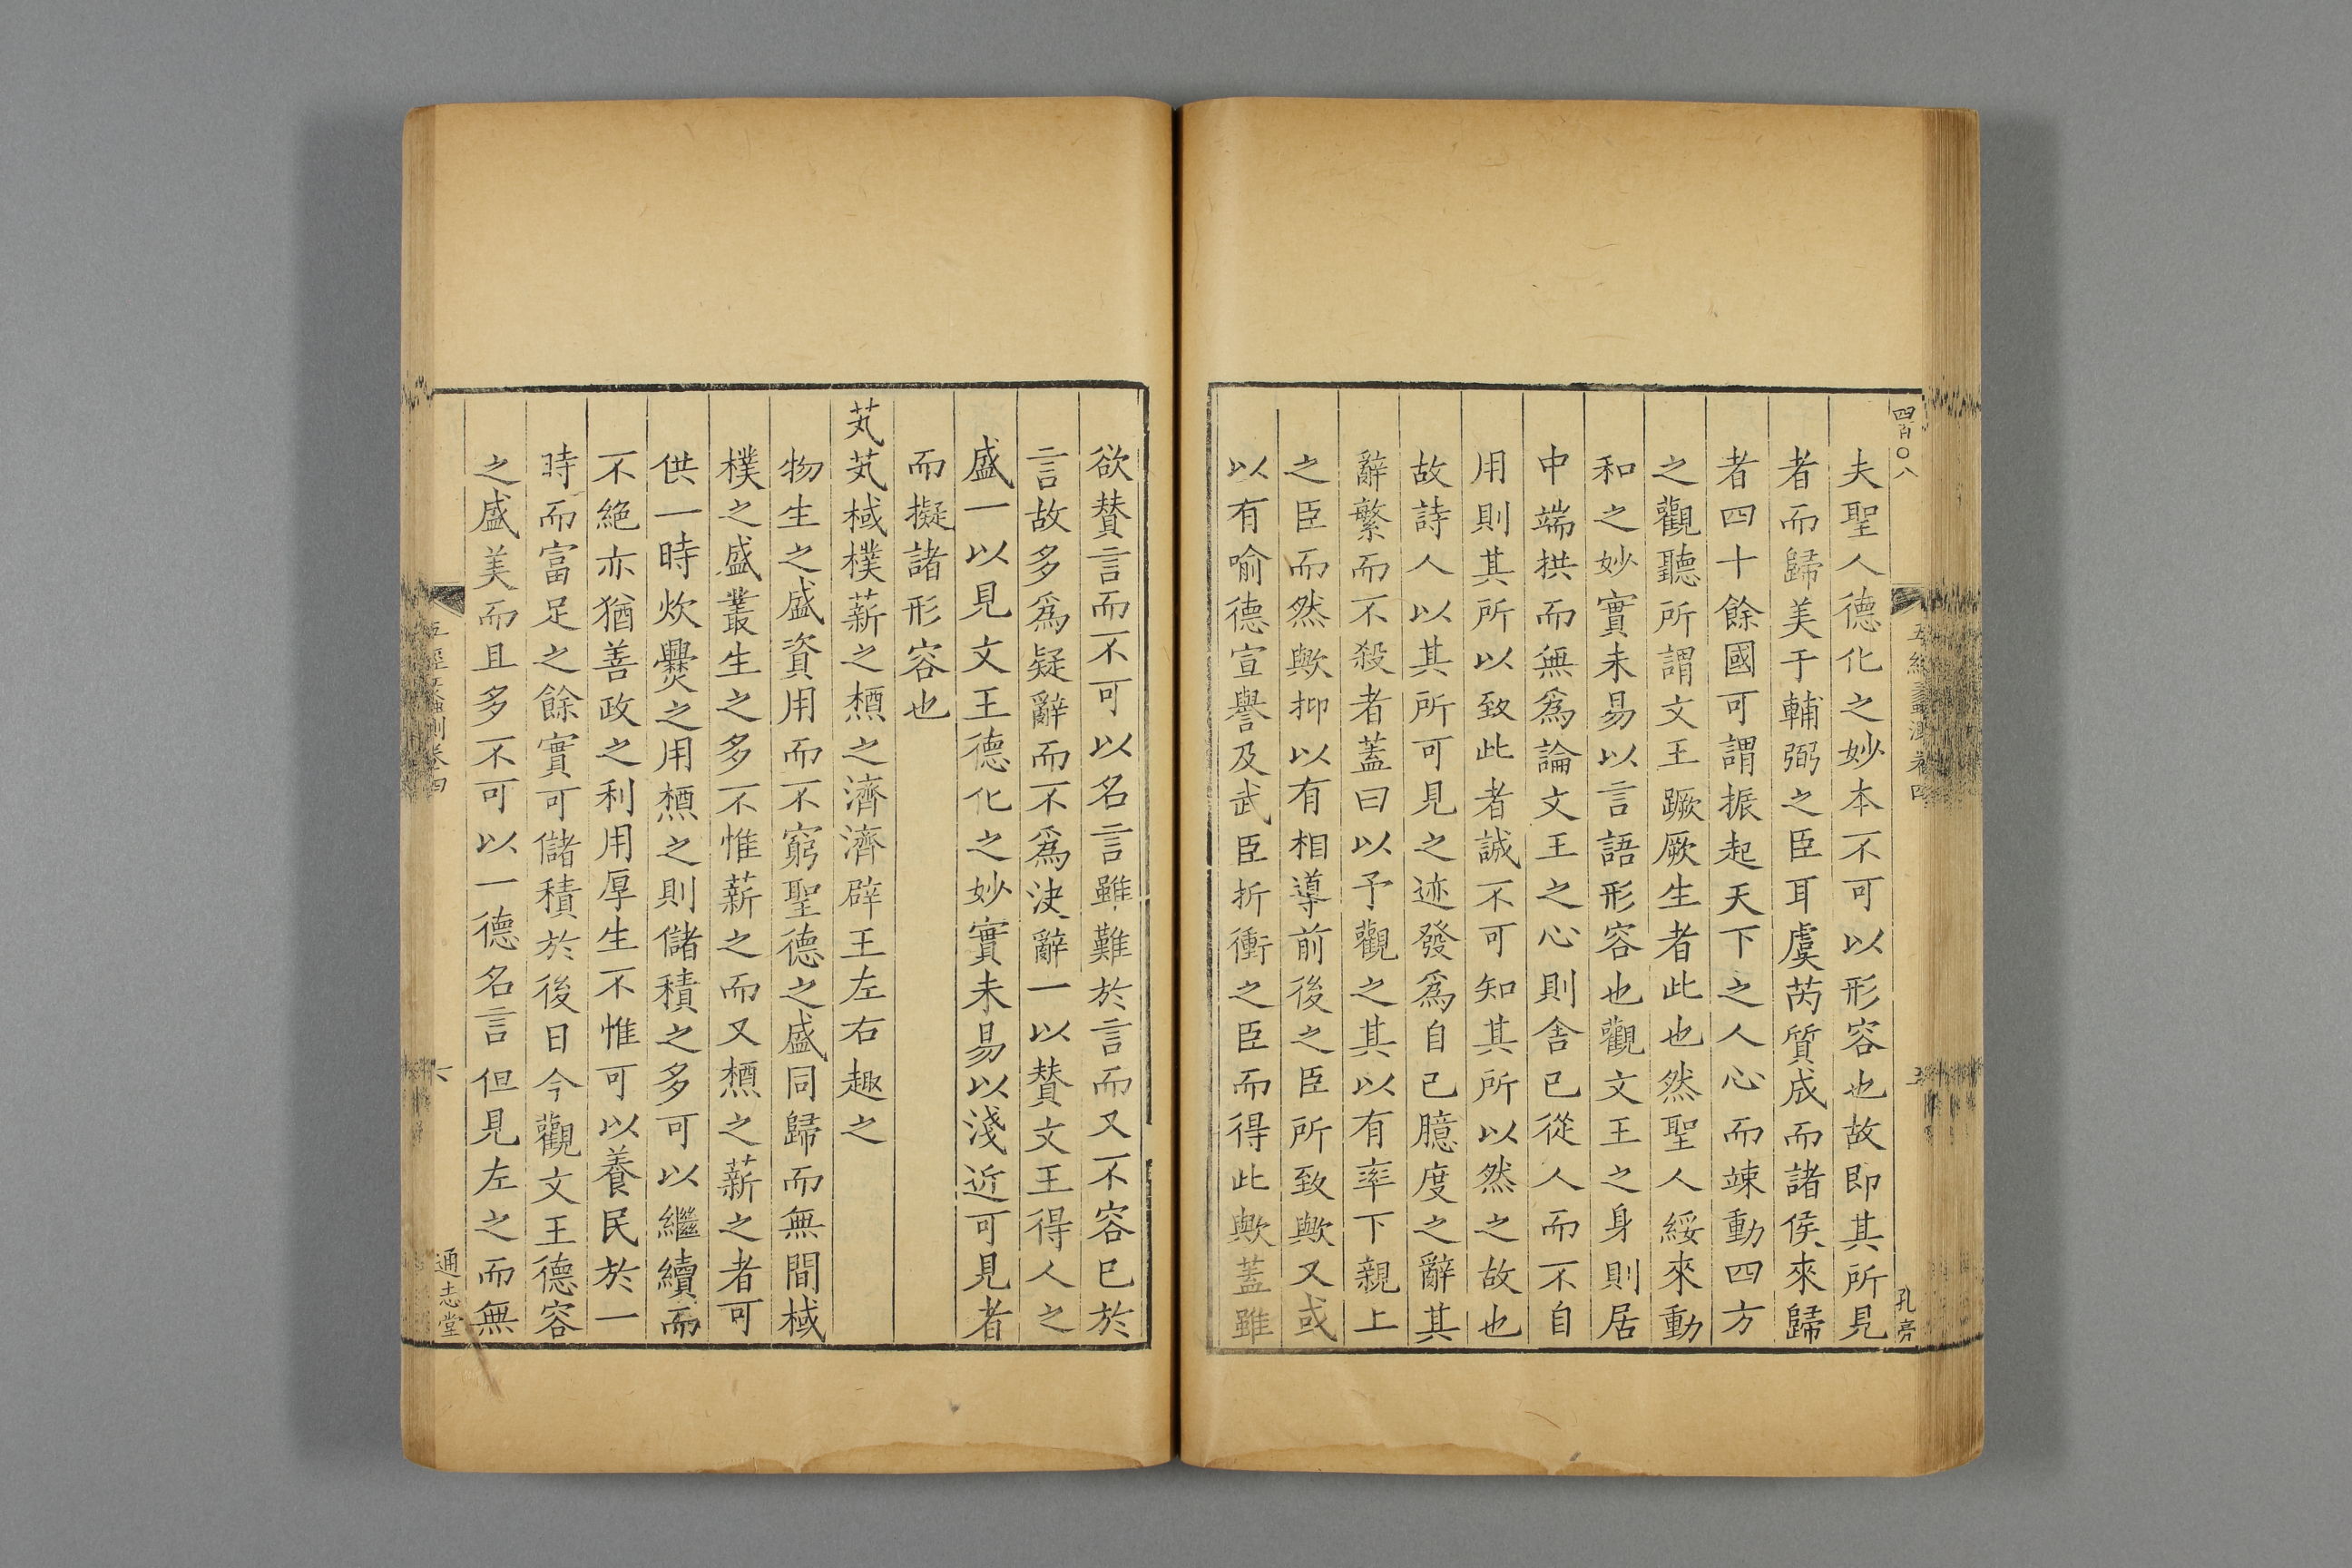 四百〇八
五經蠡測卷四
五
孔亮
夫聖人德化之妙本不可以形容也故即其所見
者而歸美于輔弼之臣耳虞芮質成而諸侯來歸
者四十餘國可謂振起天下之人心而竦動四方
之觀聽所謂文王蹶厥生者此也然聖人綏來動
和之妙實未易以言語形容也觀文王之身則居
中端拱而無爲論文王之心則舍已從人而不自
用則其所以致此者誠不可知其所以然之故也
故詩人以其所可見之迹發爲自已臆度之辭其
辭繁而不殺者蓋曰以予觀之其以有率下親上
之臣而然歟抑以有相導前後之臣所致歟又或
以有喻德宣譽及武臣折衝之臣而得此歟蓋雖
欲賛言而不可以名言雖難於言而又不容已於
言故多爲疑辭而不爲決辭一以賛文王得人之
盛一以見文王德化之妙實未易以淺近可見者
而擬諸形容也
芃芃棫樸薪之槱之濟濟辟王左右趣之
物生之盛資用而不窮聖德之盛同歸而無間棫
樸之盛叢生之多不惟薪之而又槱之薪之者可
供一時炊爨之用槱之則儲積之多可以繼續而
不絕亦猶善政之利用厚生不惟可以養民於一
時而富足之餘實可儲積於後日今觀文王德容
之盛美而且多不可以一德名言但見左之而無
五經蠡測卷四
六
通志堂